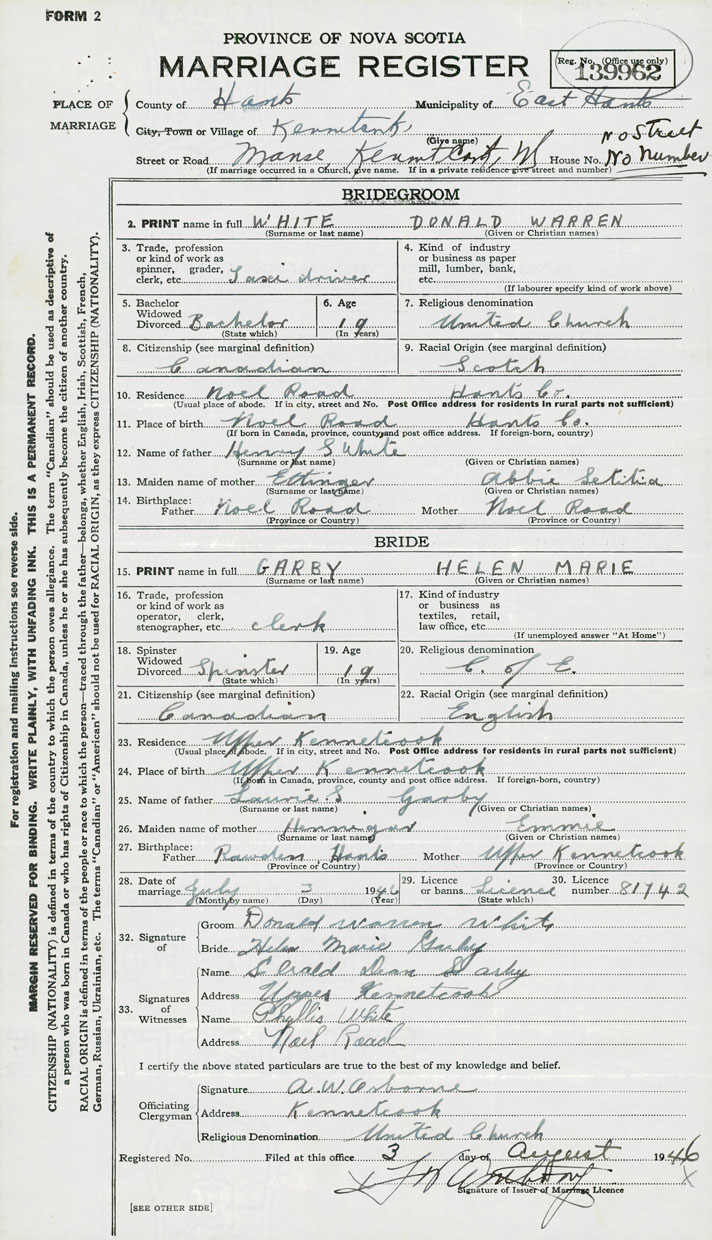 FORM 2
PROVINCE OF NOVA SCOTIA
MARRIAGE REGISTER
Reg. No. (Office use only)
139962
PLACE OF MARRIAGE
County of Hants Municipality of East Hants
City, Town or Village of Kennetcook
(Give name)
No Street
Street or Road Manse, Kennetcook, N House No. No Number
(If marriage occurred in a Church, give name. If in a private residence give street and number)
BRIDEGROOM
2. PRINT name in full WHITE DONALD WARREN
(Surname or last name) (Given or Christian names)
3. Trade, profession or kind of work as spinner, grader, clerk, etc. Taxi driver
4. Kind of industry or business as paper mill, lumber, bank, etc.
(If labourer specify kind of work above)
5. Bachelor Widowed Divorced Bachelor
(State which)
6. Age 19
(In years)
7. Religious denomination
United Church
8. Citizenship (see marginal definition)
Canadian
9. Racial Origin (see marginal definition)
Scotch
10. Residence Noel Road Hants Co.
(Usual place of abode. If in city, street and No. Post Office address for residents in rural parts not sufficient)
11. Place of birth Noel Road Hants Co.
(If born in Canada, province, county and post office address. If foreign-born, country)
12. Name of father Henry S White
(Surname or last name) (Given or Christian names)
13. Maiden name of mother Ettinger Abbie Letitia
(Surname or last name) (Given or Christian names)
14. Birthplace: Father Noel Road Mother Noel Road
(Province or Country) (Province or Country)
BRIDE
15. PRINT name in full GARBY HELEN MARIE
(Surname or last name) (Given or Christian names)
16. Trade, profession or kind of work as operator, clerk, stenographer, etc. clerk
17. Kind of industry or business as textiles, retail, law office, etc.
(If unemployed answer "At Home")
18. Spinster Widowed Divorced Spinster
(State which)
19. Age 19
(In years)
20. Religious denomination
C. of E.
21. Citizenship (see marginal definition)
Canadian
22. Racial Origin (see marginal definition)
English
23. Residence Upper Kennetcook
(Usual place of abode. If in city, street and No. Post Office address for residents in rural parts not sufficient)
24. Place of birth Upper Kennetcook
(If born in Canada, province, county and post office address. If foreign-born, country)
25. Name of father Laurie S Garby
(Surname or last name) (Given or Christian names)
26. Maiden name of mother Hennigar Emmie
(Surname or last name) (Given or Christian names)
27. Birthplace: Father Rawdon Hants Mother Upper Kennetcook
(Province or Country) (Province or Country)
28. Date of marriage July 3 1946
(Month by name) (Day) (Year)
29. Licence or banns Licence
(State which)
30. Licence number 81742
32. Signature of
Groom Donald Warren White
Bride Helen Marie Garby
33. Signatures of Witnesses
Name Gerald Dean Garby
Address Upper Kennetcook
Name Phyllis White
Address Noel Road
I certify the above stated particulars are true to the best of my knowledge and belief.
Officiating Clergyman
Signature A. W. Osborne
Address Kennetcook
Religious Denomination United Church
Registered No. Filed at this office 3 day of August 1946
Signature of Issuer of Marriage Licence
X
[SEE OTHER SIDE]
For registration and mailing instructions see reverse side.
MARGIN RESERVED FOR BINDING. WRITE PLAINLY, WITH UNFADING INK. THIS IS A PERMANENT RECORD.
CITIZENSHIP (NATIONALITY) is defined in terms of the country to which the person owes allegiance. The term "Canadian" should be used as descriptive of
a person who was born in Canada or who has rights of Citizenship in Canada, unless he or she has subsequently become the citizen of another country.
RACIAL ORIGIN is defined in terms of the people or race to which the person—traced through the father—belongs, whether English, Irish, Scottish, French,
German, Russian, Ukrainian, etc. The terms "Canadian" or "American" should not be used for RACIAL ORIGIN, as they express CITIZENSHIP (NATIONALITY).